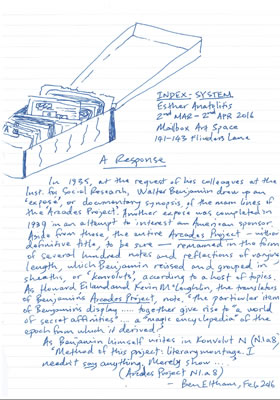 INDEX-SYSTEM
Esther Anatolitis
2nd MAR - 2nd APR 2016
Mailbox Art Space
141-143 Flinders Lane
A Response
In 1935, at the request of his colleagues at the
Inst. for Social Research, Walter Benjamin drew up an
'exposé', or documentary synopsis, of the main lines of
the Arcades Project. Another exposé was completed in
1939 in an attempt to interest an American sponsor.
Aside from these, the entire Arcades Project -
definitive title, to be sure - remained in the form
of several hundred notes and reflections of varying
length, which Benjamin revised and grouped in
sheafs, or 'konvoluts', according to a host of topics.
As Howard Eiland and Kevin McLaughlin, the translators
of Benjamin's Arcades Project, note, "the particular items
of Benjamin's display ..... together give rise to 'a world
of secret affinities' ... a "magic encyclopedia" of the
epoch from which it derived."
As Benjamin himself writes in Konvolut N (N1a,8)
"Method of this project: literary montage. I
needn't say anything. Merely show ...."
(Arcades Project N1a,8)
- Ben Eltham, Feb 2016